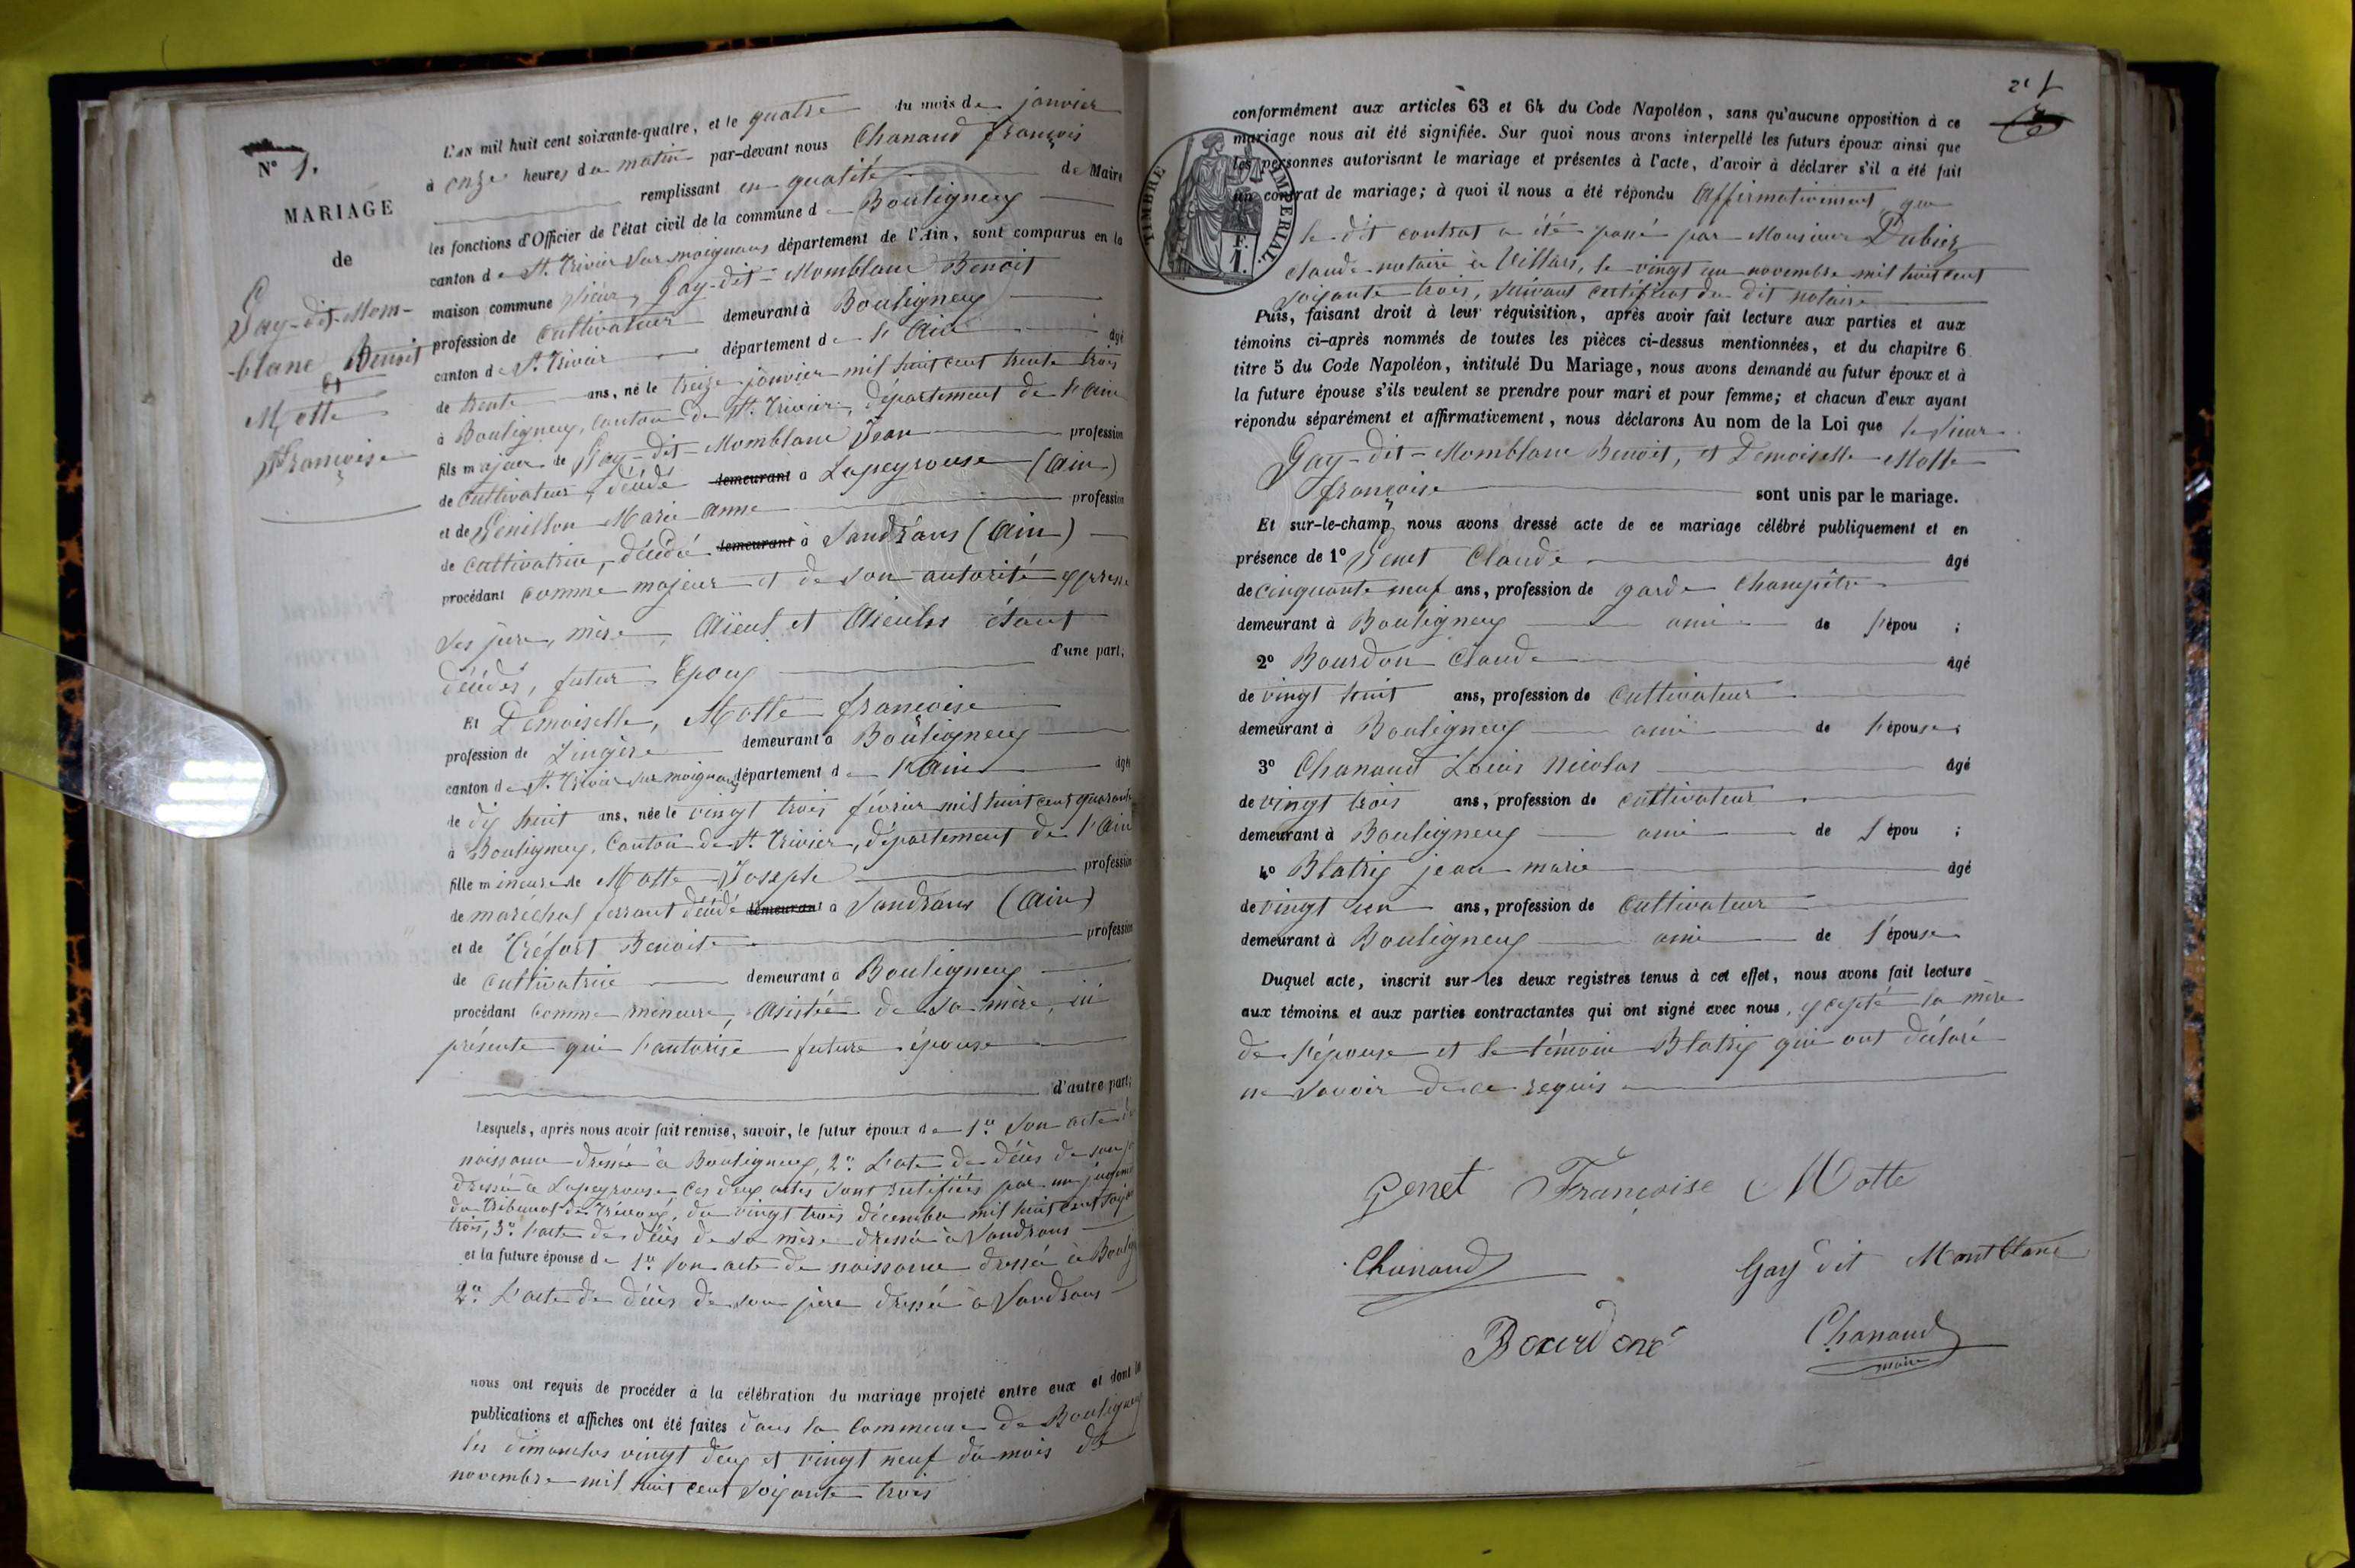 N° 1.
MARIAGE
de
Gay-dit-Mom-
-blanc Benoit
et
Motte
Françoise
L'AN mil huit cent soixante-quatre, et le quatre du mois de janvier
à onze heures du matin par-devant nous Chanaud françois
remplissant en qualité de Maire
les fonctions d'Officier de l'état civil de la commune d e Bouligneux
canton d e St. Trivier sur moignans département de l'Ain, sont comparus en la
maison commune sieur, Gay-dit-Momblanc Benoit
profession de cultivateur demeurant à Bouligneux
canton d e St. Trivier département d e l'Ain âgé
de trente ans, né le treize janvier mil huit cent trente trois
à Bouligneux, canton de St. Trivier, département de l'ain
fils majeur de Gay-dit-Momblanc Jean profession
de cultivateur, décédé demeurant à Lapeyrouse (Ain)
et de Genillon Marie anne profession
de cultivatrice, décédé demeurant à Sandrans (Ain)
procédant comme majeur et de son autorité expresse
ses père, mère, Aïeul et Aïeules étant
décédés, futur Epoux d'une part;
Et Demoiselle, Motte françoise
profession de Lingère demeurant à Bouligneux
canton d e St. Trivier sur moignans département d e l'Ain âgée
de dix huit ans, née le vingt trois février mil huit cent quarante
à Bouligneux, Canton de St. Trivier, département de l'Ain
fille mineure de Motte Joseph profession
de maréchal ferrant décédé demeurant à Sandrans (Ain)
et de Tréfort Benoite profession
de cultivatrice demeurant à Bouligneux
procédant comme mineure, assistée de sa mère, ici
présente qui l'autorise future épouse
d'autre part;
Lesquels, après nous avoir fait remise, savoir, le futur époux d e 1° son acte de
naissance dressé à Bouligneux, 2° L'acte de décès de son
dressé à Lapeyrouse ces deux actes sont rectifiés par un jugement
du Tribunal de Trévoux, du vingt trois décembre mil huit cent soixante
trois, 3° l'acte de décès de sa mère dressé à Sandrans
et la future épouse d e 1° son acte de naissance dressé à
2° L'acte de décès de son père dressé à Sandrans
nous ont requis de procéder à la célébration du mariage projeté entre eux et dont les
publications et affiches ont été faites dans la Commune de Bouligneux
les dimanches vingt deux et vingt neuf du mois de
novembre mil huit cent soixante trois
TIMBRE IMPERIAL.
F.
1.
conformément aux articles 63 et 64 du Code Napoléon, sans qu'aucune opposition à ce
mariage nous ait été signifiée. Sur quoi nous avons interpellé les futurs époux ainsi que
les personnes autorisant le mariage et présentes à l'acte, d'avoir à déclarer s'il a été fait
un contrat de mariage; à quoi il nous a été répondu Affirmativement que
le dit contrat a été passé par Monsieur Dubiez
claude notaire à Villars, le vingt un novembre mil huit cent
soixante trois, suivant certificat du dit notaire
Puis, faisant droit à leur réquisition, après avoir fait lecture aux parties et aux
témoins ci-après nommés de toutes les pièces ci-dessus mentionnées, et du chapitre 6
titre 5 du Code Napoléon, intitulé Du Mariage, nous avons demandé au futur époux et à
la future épouse s'ils veulent se prendre pour mari et pour femme; et chacun d'eux ayant
répondu séparément et affirmativement, nous déclarons Au nom de la Loi que le sieur
Gay-dit-Momblanc Benoit, et Demoiselle Motte
françoise sont unis par le mariage.
Et sur-le-champ nous avons dressé acte de ce mariage célébré publiquement et en
présence de 1° Genet Claude âgé
de cinquante neuf ans, profession de garde Champêtre
demeurant à Bouligneux ami de l'épou ;
2° Bourdon Claude âgé
de vingt huit ans, profession de cultivateur
demeurant à Bouligneux ami de l'épouse;
3° Chanaud Louis Nicolas âgé
de vingt trois ans, profession de cultivateur
demeurant à Bouligneux ami de l'épou ;
4° Blatrix jean marie âgé
de vingt un ans, profession de cultivateur
demeurant à Bouligneux ami de l'épouse
Duquel acte, inscrit sur les deux registres tenus à cet effet, nous avons fait lecture
aux témoins et aux parties contractantes qui ont signé avec nous, excepté la mère
de l'épouse et le témoin Blatrix qui ont déclaré
ne savoir de ce requis
Genet Françoise Motte
Chanaud Gay dit Montblanc
Bourdon Chanaud
maire